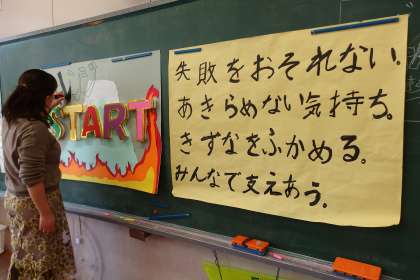 START
失敗をおそれない.
あきらめない気持ち.
きずなをふかめる.
みんなで支えあう.